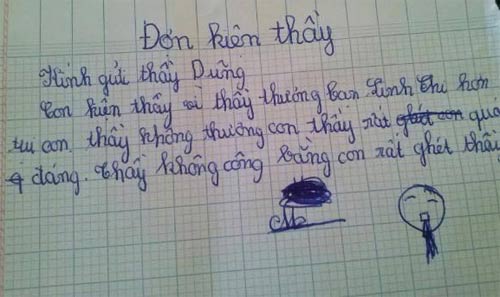 Đơn kiên thầy
Kính gửi thầy Dũng
Con kiện thầy vì thầy thương bạn Linh Chi hơn
tụi con. thầy không thương con thầy rất ghét con quá
đáng. thầy không công bằng con rất ghét thầy